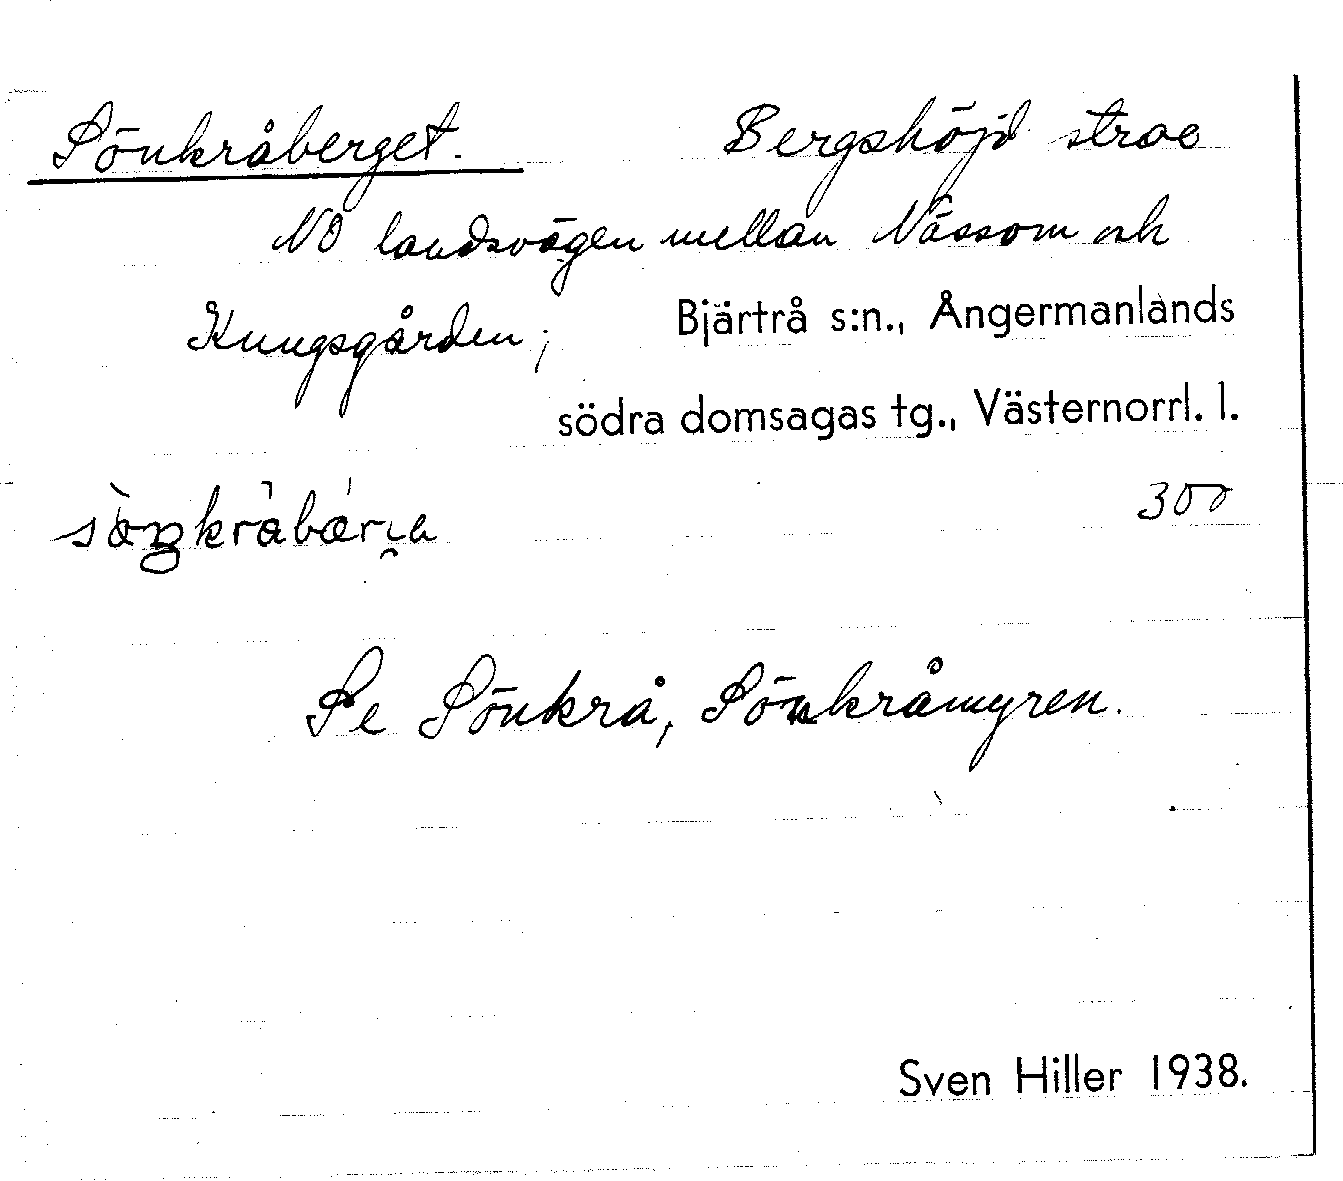 Sönkråberget. Bergshöjd strax
NÖ landsvägen mellan Nässom och
Kungsgården; Bjärtrå s:n., Ångermanlands
södra domsagas tg., Västernorrl. l.
300
Se Sönkrå, Sönkråmyren.
Sven Hiller 1938.